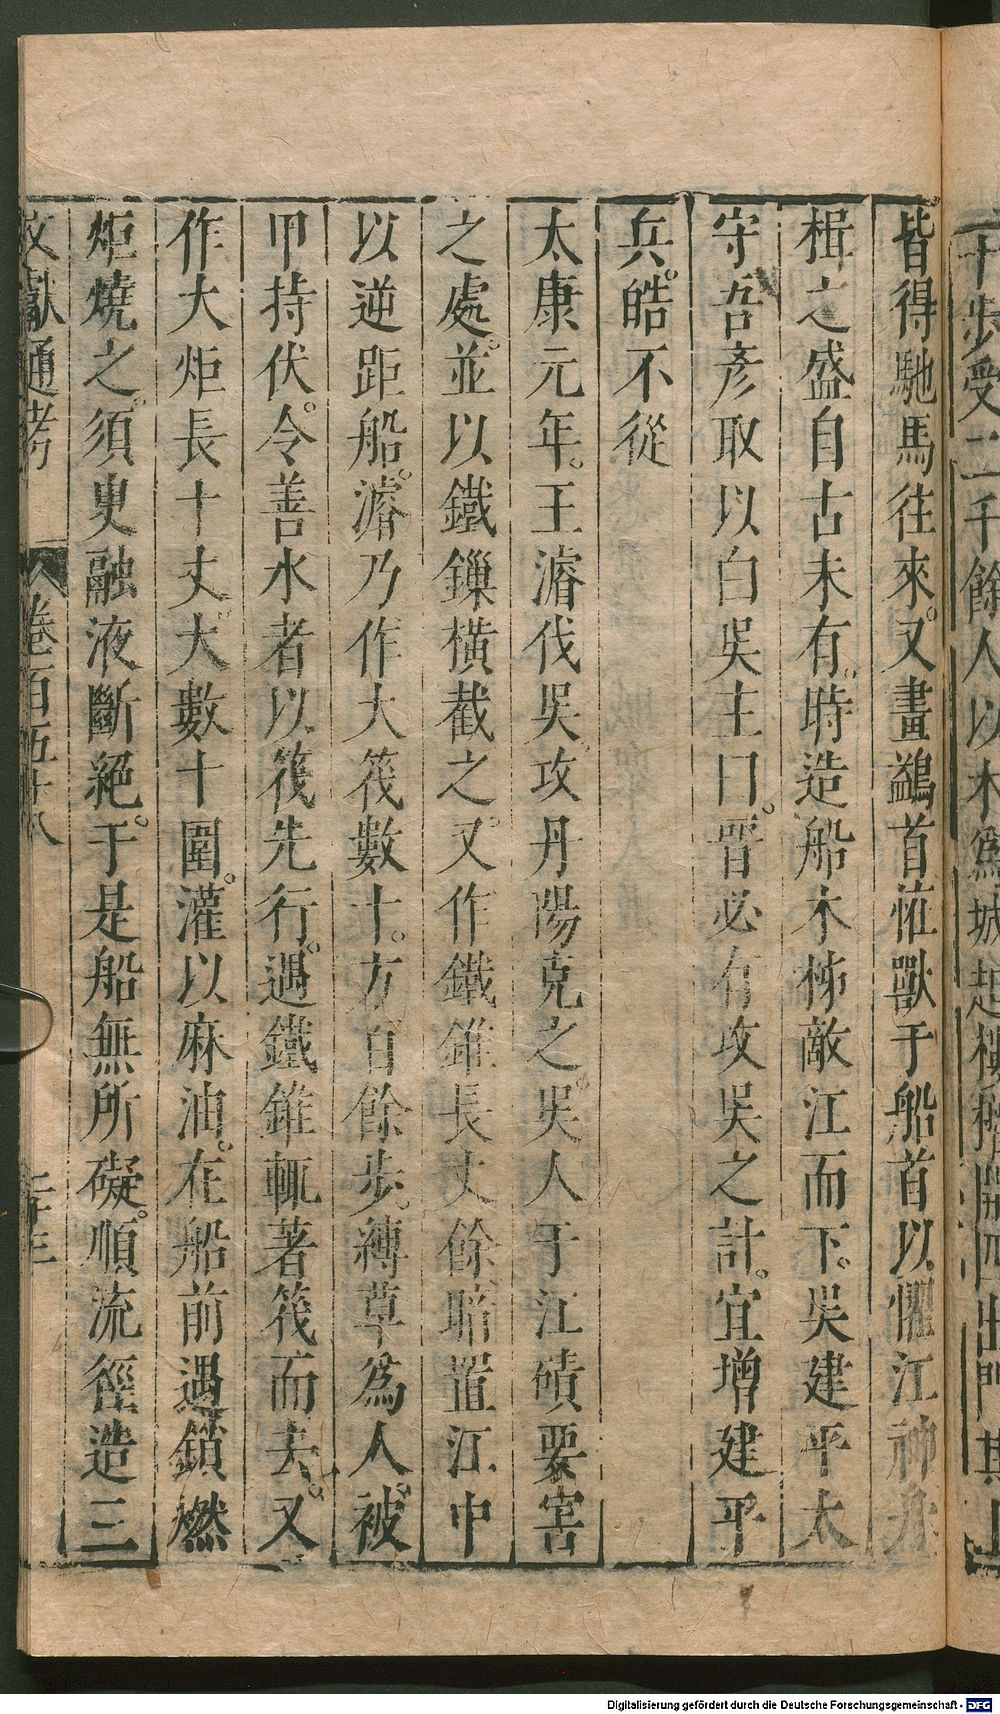 十步受二千餘人以木爲城起樓櫓開四出門其上
皆得馳馬往來。又畫鷁首怪獸于船首以懼江神舟
楫之盛自古未有。時造船木柹蔽江而下。吳建平太
守吾彥取以白吳主曰。晉必有攻吳之計。宜增建平
兵。皓不從
太康元年。王濬伐吳攻丹陽克之。吳人于江磧要害
之處。並以鐵鏁橫截之。又作鐵錐長丈餘暗置江中
以逆距船。濬乃作大筏數十。方百餘步。縛草爲人。被
甲持伏。令善水者以筏先行。遇鐵錐輒著筏而去。又
作大炬長十丈。大數十圍。灌以麻油。在船前遇鎖燃
炬燒之。須臾融液斷絕。于是船無所礙。順流徑造三
文獻通考 卷百五十八 二十三
Digitalisierung gefördert durch die Deutsche Forschungsgemeinschaft - DFG